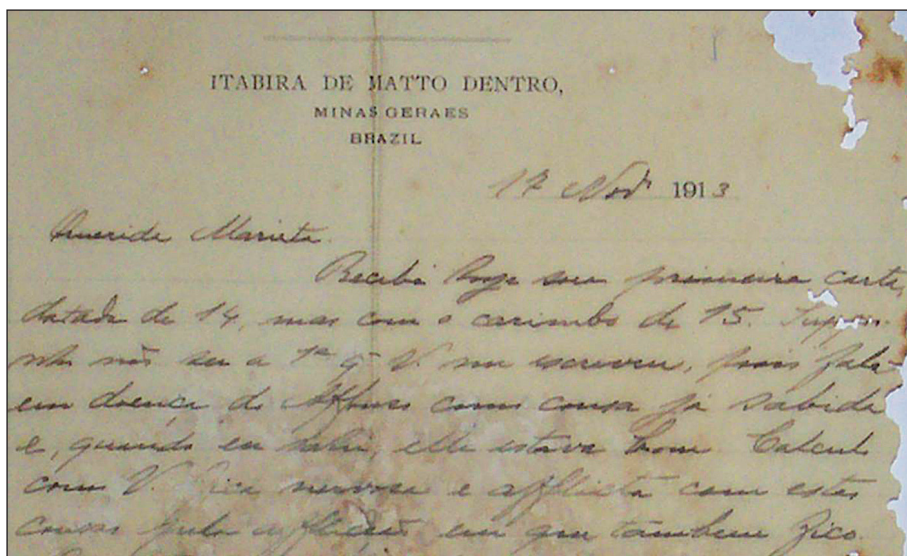 ITABIRA DE MATTO DENTRO,
MINAS GERAES
BRAZIL
17 Nov 1913
Querida Marieta
Recebi hoje sua primeira carta,
datada de 14, mas com o carimbo de 15. Suppo-
nho não ser a 1ª q̃ V. me escreveu, pois fala
em doença do Affonso como cousa já sabida
e, quando eu sahi, elle estava bom. Calculo
como V. fica nervosa e afflicta com estas
cousas pela afflicção em que tambem fico.